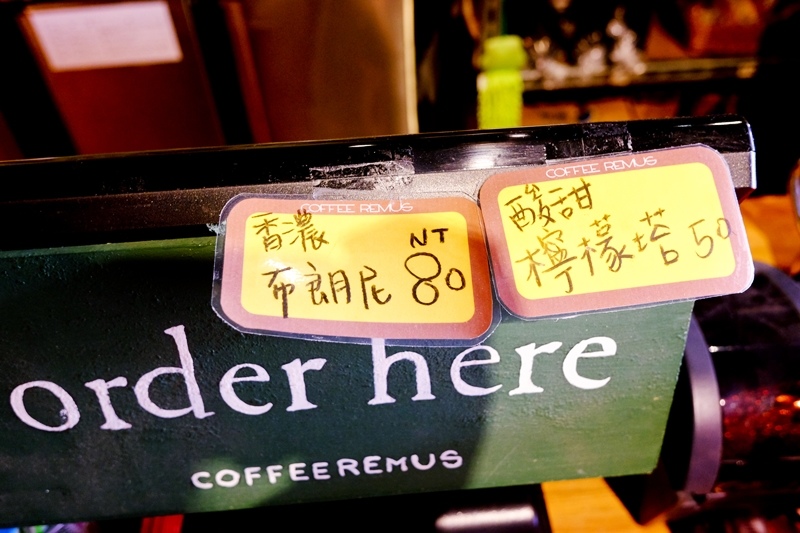 COFFEE REMUS
香濃
NT
布朗尼 80
COFFEE REMUS
酸甜
檸檬塔 50
order here
COFFEEREMUS